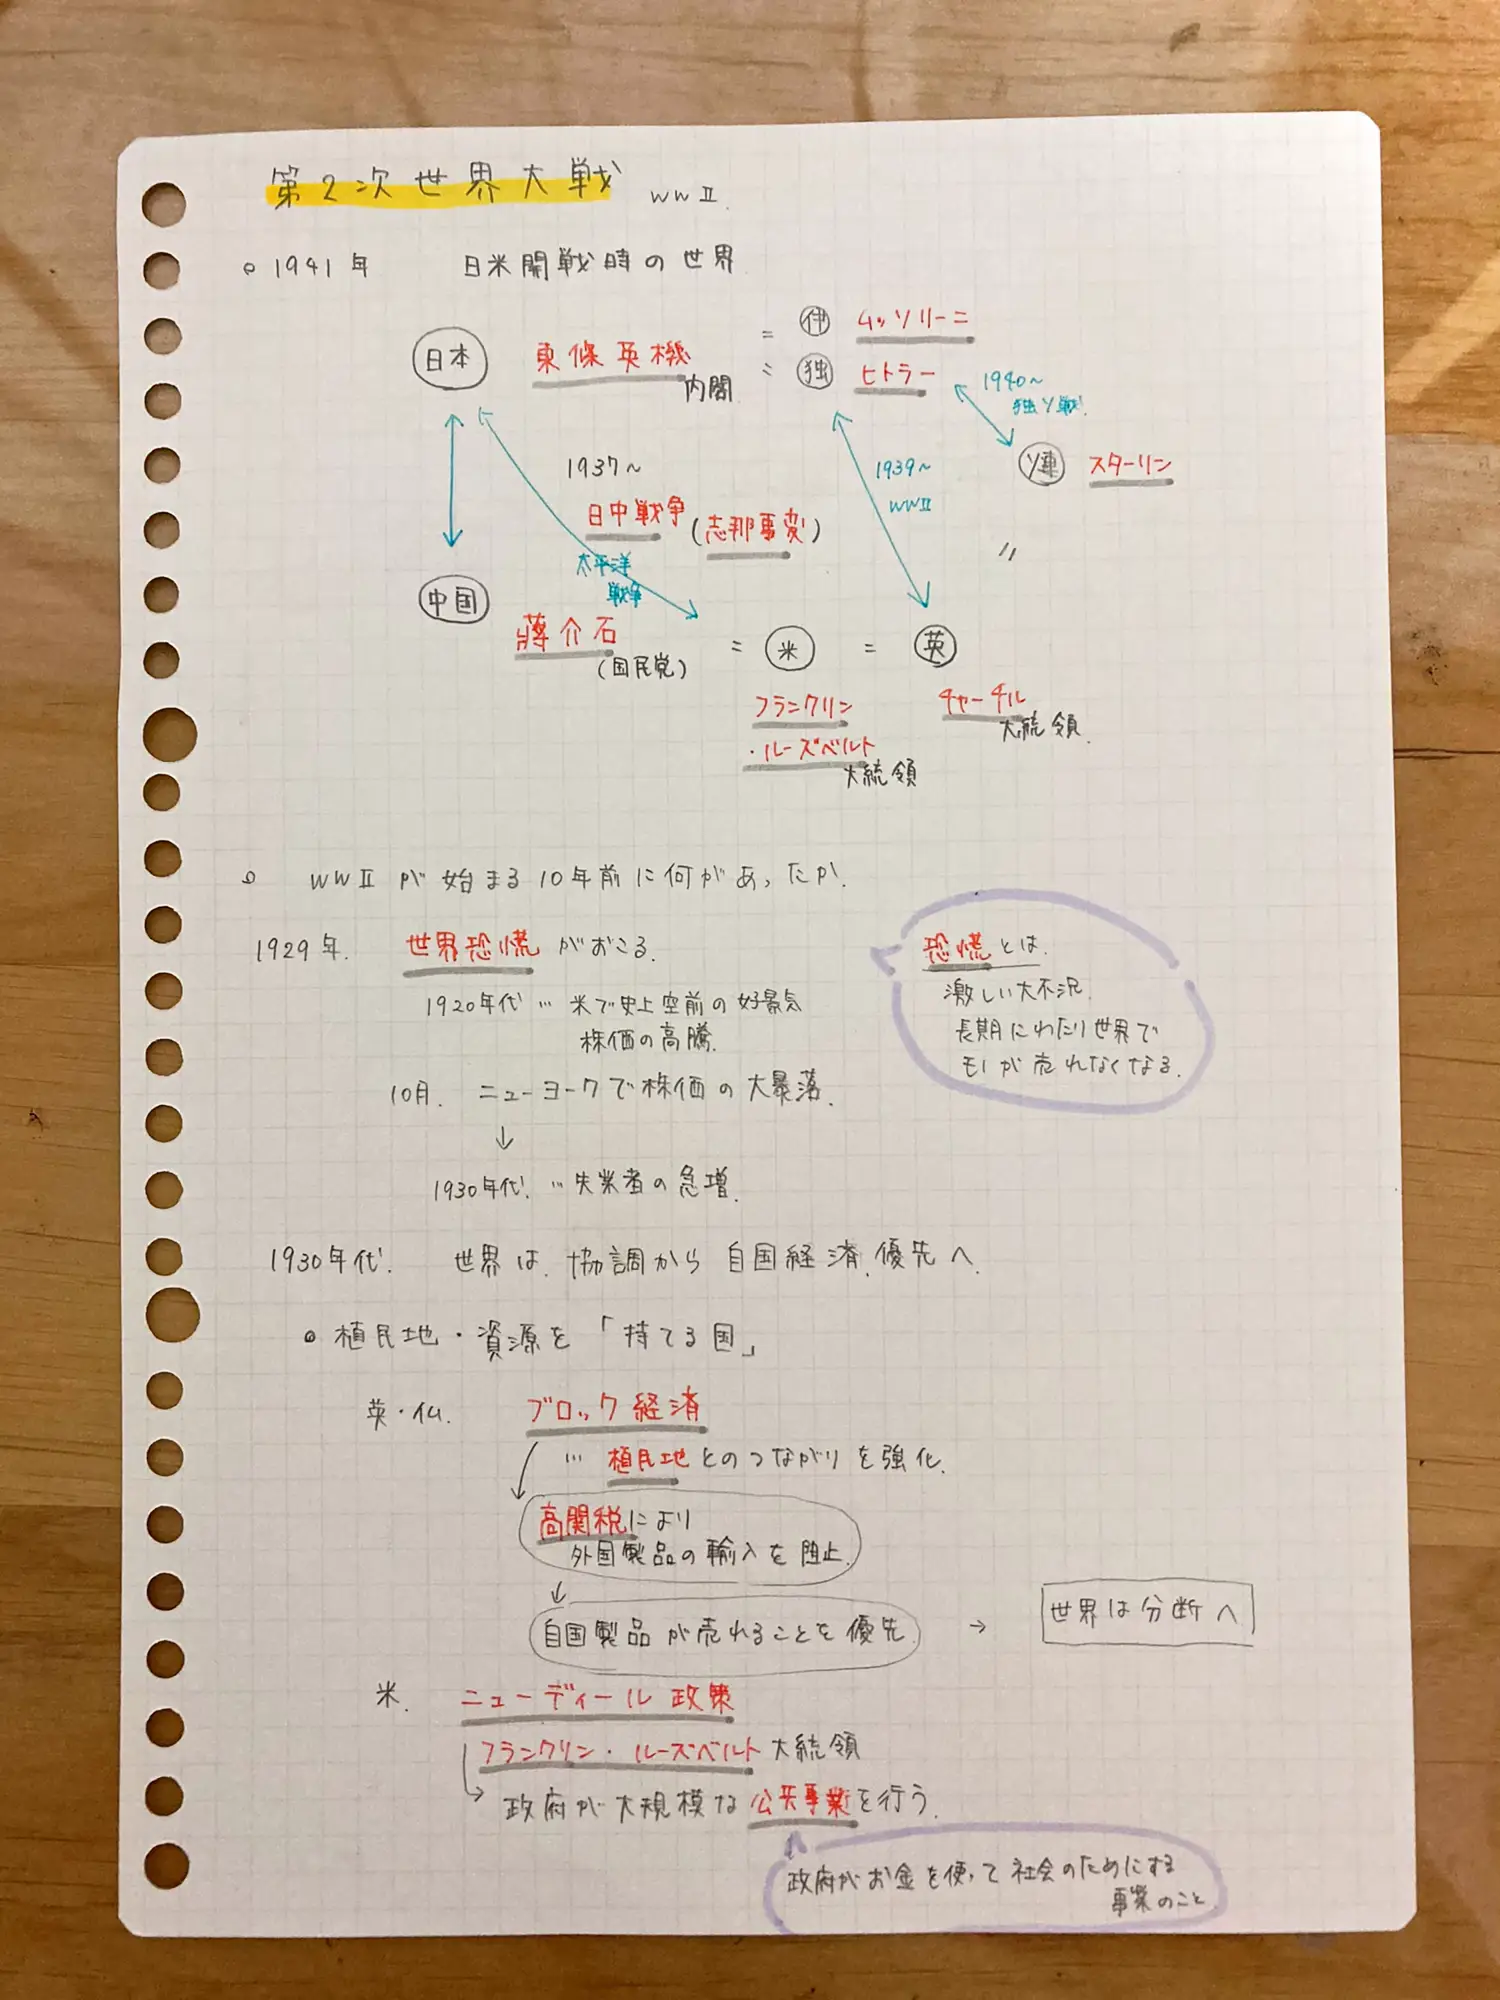 第2次世界大戦 WWⅡ.
○1941年 日米開戦時の世界
= 伊 ムッソリーニ
日本 東條英機 内閣 = 独 ヒトラー
1940〜
独ソ戦.
1937〜
1939〜
WWⅡ
ソ連 スターリン
日中戦争 (志那事変)
〃
太平洋
戦争
中国 蔣介石 = 米 = 英
(国民党)
フランクリン
・ルーズベルト
大統領
チャーチル
大統領.
○ WWⅡが始まる10年前に何があったか.
1929年. 世界恐慌がおこる.
1920年代 … 米で史上空前の好景気
株価の高騰.
10月. ニューヨークで株価の大暴落.
↓
1930年代. … 失業者の急増.
恐慌とは.
激しい大不況.
長期にわたり世界で
モノが売れなくなる.
1930年代. 世界は、協調から自国経済優先へ.
○植民地・資源を「持てる国」
英・仏. ブロック経済
… 植民地とのつながりを強化.
高関税により
外国製品の輸入を阻止.
↓
自国製品が売れることを優先. → 世界は分断へ
米. ニューディール政策
フランクリン・ルーズベルト大統領
政府が大規模な公共事業を行う.
政府がお金を使って社会のためにする
事業のこと.